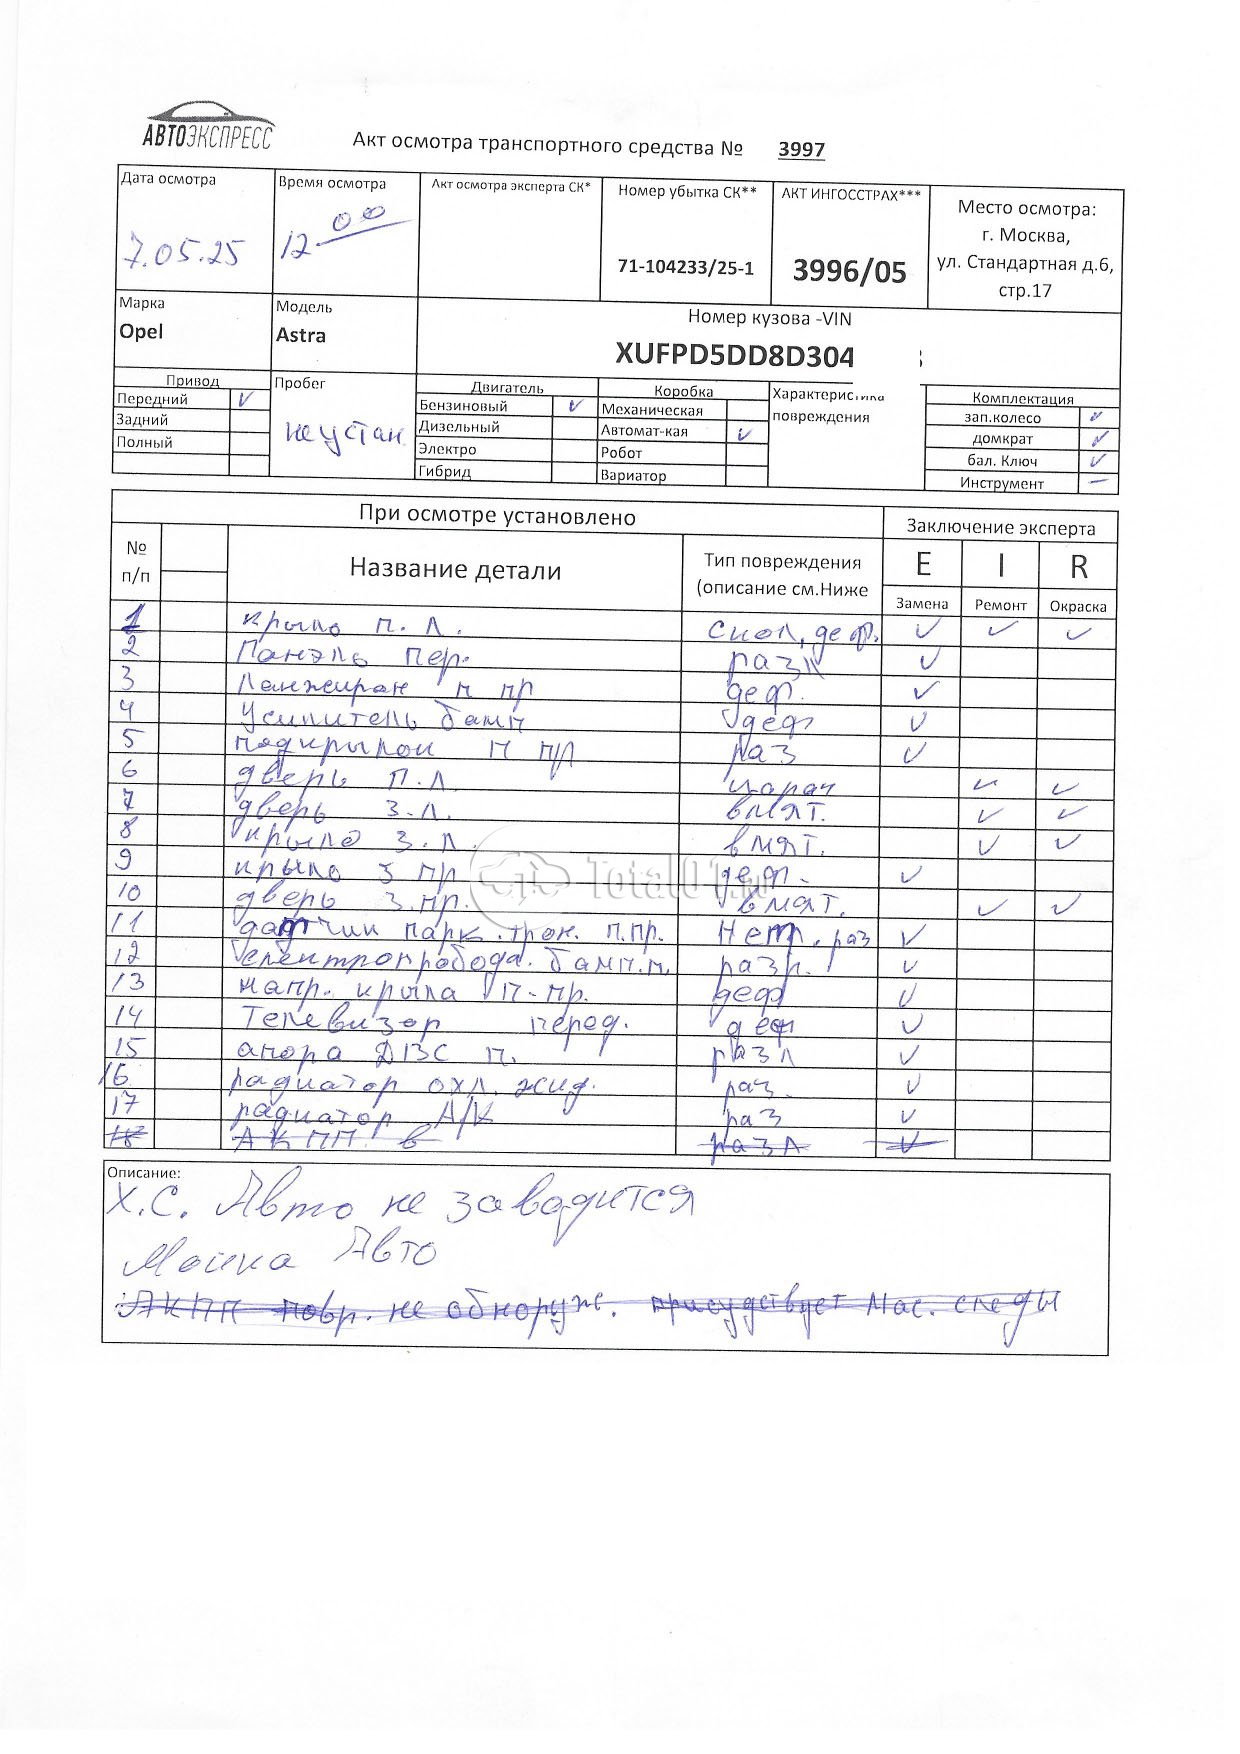 АВТОЭКСПРЕСС
Акт осмотра транспортного средства № 3997
Дата осмотра
7.05.25
Время осмотра
12 00
Акт осмотра эксперта СК*
Номер убытка СК**
71-104233/25-1
АКТ ИНГОССТРАХ***
3996/05
Место осмотра:
г. Москва,
ул. Стандартная д.6,
стр.17
Марка
Opel
Модель
Astra
Номер кузова -VIN
XUFPD5DD8D304
Привод
Передний ✓
Задний
Полный
Пробег
не устан.
Двигатель
Бензиновый ✓
Дизельный
Электро
Гибрид
Коробка
Механическая
Автомат-кая ✓
Робот
Вариатор
Характеристика
повреждения
Комплектация
зап.колесо ✓
домкрат ✓
бал. Ключ ✓
Инструмент –
При осмотре установлено
Заключение эксперта
№
п/п
Название детали
Тип повреждения
(описание см.Ниже
E I R
Замена Ремонт Окраска
1 крыло п. л. скол, деф. ✓ ✓ ✓
2 Панэль пер. разл ✓
3 Ланжиран п пр деф. ✓
4 Усилитель бамп деф ✓
5 подкрылок п пр раз ✓
6 дверь п.л. царап ✓ ✓
7 дверь з.л. вмят. ✓ ✓
8 крыло з.л. вмят. ✓ ✓
9 крыло з пр деф. ✓
10 дверь з.пр. вмят. ✓ ✓
11 датчик парк.трон. п.пр. Нет, раз ✓
12 электропробода. бамп.п. разр. ✓
13 напр. крыла п-пр. деф ✓
14 Телевизор перед. деф ✓
15 апора ДВС п. разл ✓
16 радиатор охл. жид. раз. ✓
17 радиатор А/К раз ✓
18 АКПП в разл ✓
Total01.ru
Описание:
Х.С. Авто не заводится
Мойка Авто
АКПП повр. не обноруже. присудствует мас. следы